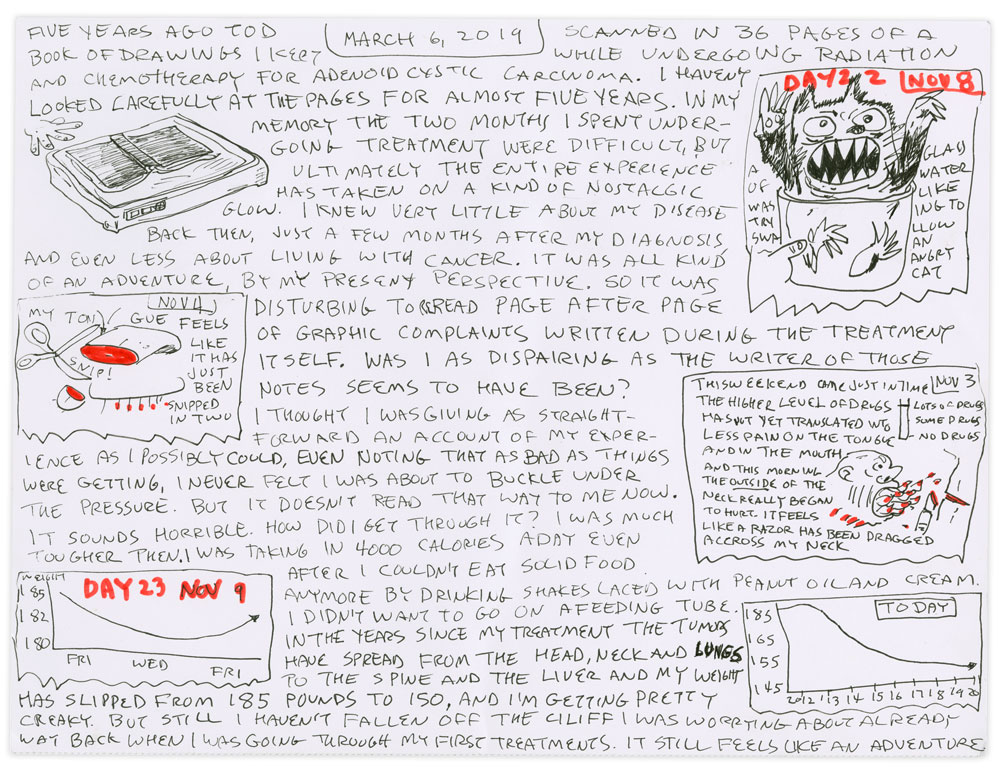 FIVE YEARS AGO TOD
MARCH 6, 2019
SCANNED IN 36 PAGES OF A
BOOK OF DRAWINGS I KEPT
WHILE UNDERGOING RADIATION
AND CHEMOTHERAPY FOR ADENOID CYSTIC CARCINOMA. I HAVEN'T
LOOKED CAREFULLY AT THE PAGES FOR ALMOST FIVE YEARS. IN MY
MEMORY THE TWO MONTHS I SPENT UNDER-
GOING TREATMENT WERE DIFFICULT, BUT
ULTIMATELY THE ENTIRE EXPERIENCE
HAS TAKEN ON A KIND OF NOSTALGIC
GLOW. I KNEW VERY LITTLE ABOUT MY DISEASE
BACK THEN, JUST A FEW MONTHS AFTER MY DIAGNOSIS
AND EVEN LESS ABOUT LIVING WITH CANCER. IT WAS ALL KIND
OF AN ADVENTURE, BY MY PRESENT PERSPECTIVE. SO IT WAS
DISTURBING TO READ PAGE AFTER PAGE
OF GRAPHIC COMPLAINTS WRITTEN DURING THE TREATMENT
ITSELF. WAS I AS DISPAIRING AS THE WRITER OF THOSE
NOTES SEEMS TO HAVE BEEN?
I THOUGHT I WAS GIVING AS STRAIGHT-
FORWARD AN ACCOUNT OF MY EXPER-
IENCE AS I POSSIBLY COULD, EVEN NOTING THAT AS BAD AS THINGS
WERE GETTING, I NEVER FELT I WAS ABOUT TO BUCKLE UNDER
THE PRESSURE. BUT IT DOESN'T READ THAT WAY TO ME NOW.
IT SOUNDS HORRIBLE. HOW DID I GET THROUGH IT? I WAS MUCH
TOUGHER THEN. I WAS TAKING IN 4000 CALORIES A DAY EVEN
AFTER I COULDN'T EAT SOLID FOOD
ANYMORE BY DRINKING SHAKES LACED WITH PEANUT OIL AND CREAM.
I DIDN'T WANT TO GO ON A FEEDING TUBE.
IN THE YEARS SINCE MY TREATMENT THE TUMORS
HAVE SPREAD FROM THE HEAD, NECK AND LUNGS
TO THE SPINE AND THE LIVER AND MY WEIGHT
HAS SLIPPED FROM 185 POUNDS TO 150, AND I'M GETTING PRETTY
CREAKY. BUT STILL I HAVEN'T FALLEN OFF THE CLIFF I WAS WORRYING ABOUT ALREADY
WAY BACK WHEN I WAS GOING THROUGH MY FIRST TREATMENTS. IT STILL FEELS LIKE AN ADVENTURE
DAY 22 NOV 8
A GLASS
OF WATER
WAS LIKE
TRY ING TO
SWA LLOW
AN
ANGRY
CAT
NOV 4
MY TON GUE FEELS
LIKE
IT HAS
JUST
BEEN
SNIPPED
IN TWO
SNIP!
THIS WEEKEND CAME JUST IN TIME
NOV 3
THE HIGHER LEVEL OF DRUGS
HAS NOT YET TRANSLATED INTO
LESS PAIN ON THE TONGUE
AND IN THE MOUTH
AND THIS MORNING
THE OUTSIDE OF THE
NECK REALLY BEGAN
TO HURT. IT FEELS
LIKE A RAZOR HAS BEEN DRAGGED
ACCROSS MY NECK
LOTS OF DRUGS
SOME DRUGS
NO DRUGS
WEIGHT
DAY 23 NOV 9
185
182
180
FRI WED FRI
TODAY
185
165
155
145
2012 '13 14 15 16 17 18 19 20